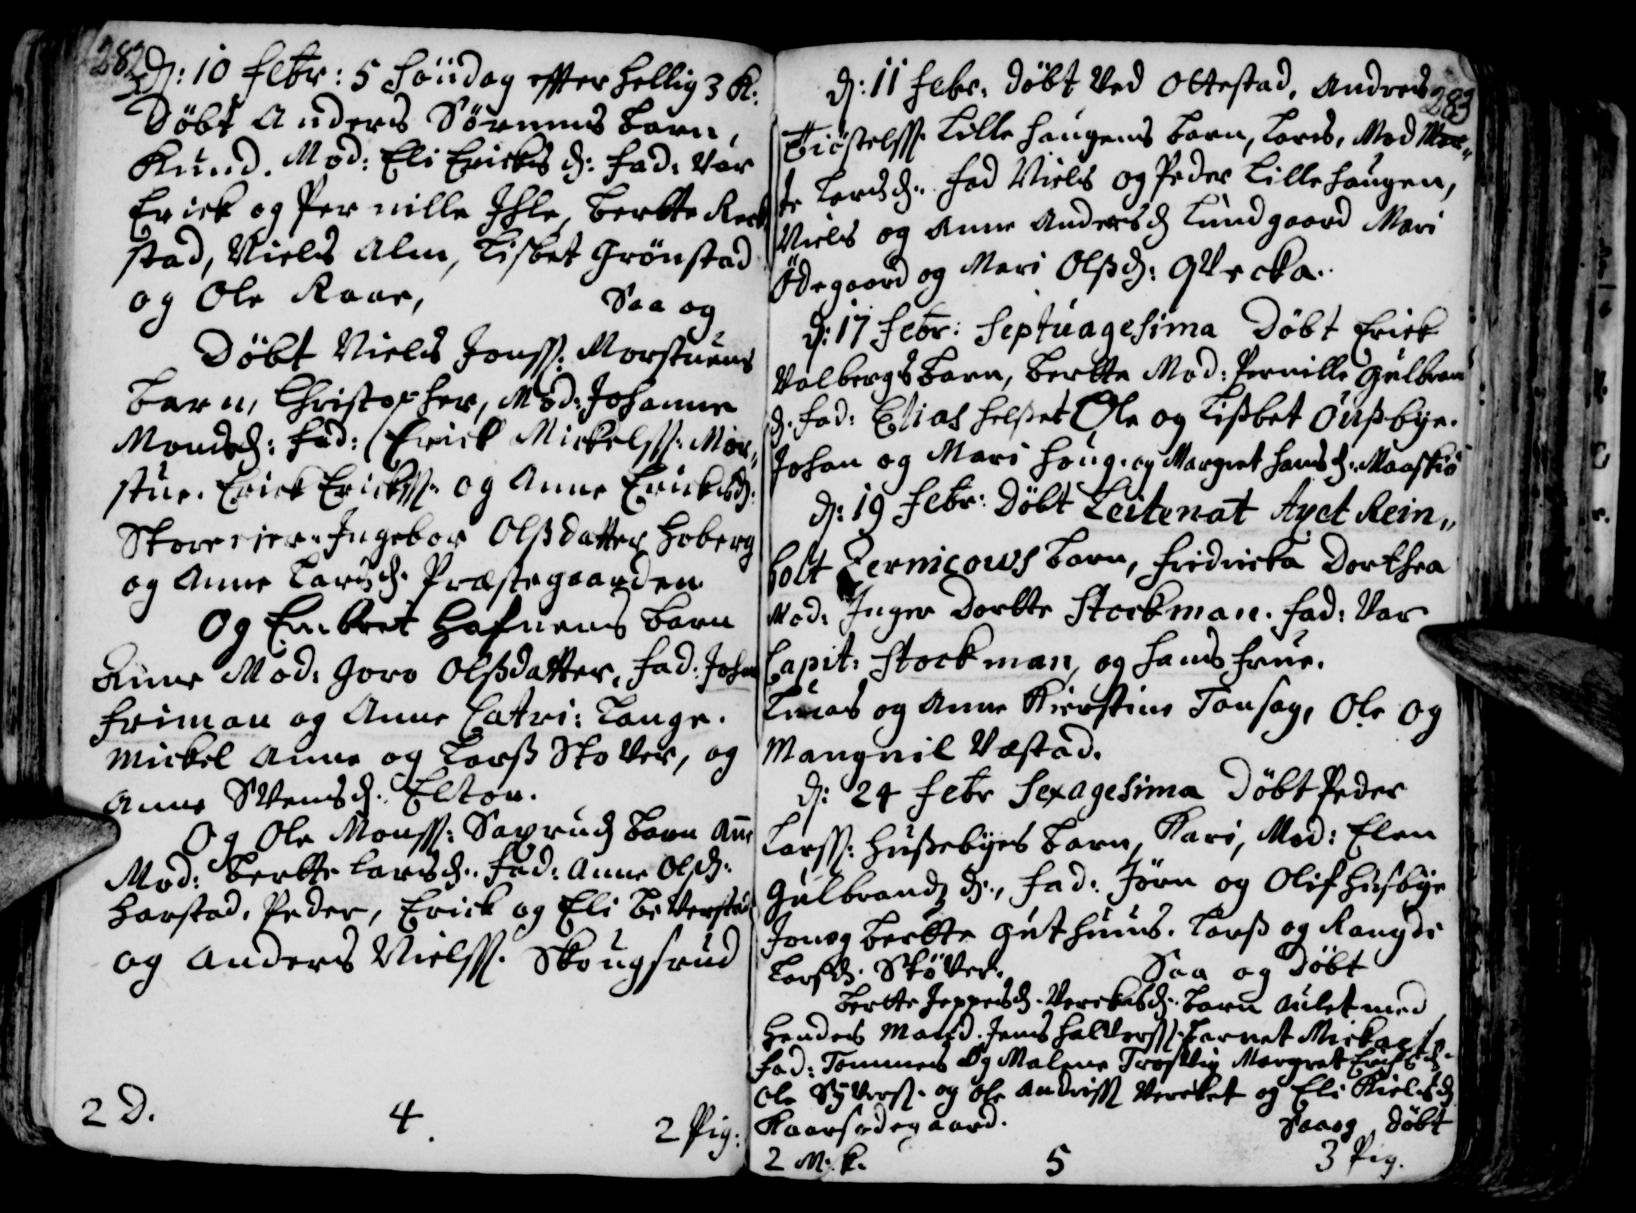 282
D: 10 Febr: 5 Søndag effter Hellig 3 K:
Døbt Anders Sørnums barn,
Knud. Mod: Eli Ericks D: Fad: Var
Erick og Pernille Ihle, Berthe
stad, Niels Alm, Lisbet Grønstad
og Ole Kaar, Saa og
Døbt Niels Jonss: Morstuens
barn, Christopher, Mod: Johanne
Monsd: Fad: Erick Mickelss: Mor„
stue. Erick Erickss: og Anne Ericksd:
Ingebor Olsdatter Hoberg
og Anne Larsd: Præstegaarden
Og Embret Hafnens barn
Anne Mod: Goro Olsdatter, Fad: Johan
Friman og Anne Catri: Lange.
Mickel Anne og Larss Skover, og
Anne Svensd: Elton.
Og Ole Monss: Saxrud barn Anne
Mod: Berthe Larsd: Fad: Anne Olsd:
Harstad, Peder, Erick og Eli Beverstad
og Anders Nielss: Skougsrud
2 D. 4. 2 Pig:
283
D: 11 Febr. Døbt Ved Ottestad, Anders
Kiøstelss: Lille Haugens barn, Lars, Mod Mar„
te Larsd: Fad Niels og Peder Lillehaugen,
Niels og Anne Andersd Lundgaard Mari
Ødegaard og Mari Olsd: Qvecka.
D: 17 Febr: Septuagesima Døbt Erick
Valbergs barn, Berthe Mod: Pernille Gulbran
d: Fad: Elias Helset Ole og Lisbet Ousbye.
Johan og Mari Houg. og Margret Hansd: Maastu
D: 19 Febr: Døbt Leitenat Axet Rein„
holt Zernicows barn, Fridricka Dorthea
Mod: Inger Dorthe Stockman. Fad: Var
Capit: Stockman, og hans Frue.
Lucas og Anne Kierstine Tonsag, Ole og
Mangnil Væstad.
D: 24 Febr Sexagesima Døbt Peder
Larss: Hussebyes barn, Kari, Mod: Elen
Gulbrandz D:, Fad: Jørn og Olif Husbye
Jon og Berthe Guthuus. Larss og Rangdi
Larsd: Skøver. Saa og Døbt
Berthe Jeppesd: Verckesd: barn aulet med
Jens Halvorss: barnet Mickael
Fad: Tommes Og Malene Trostvig Margret Ericksd:
Ole Syverss: og Ole Andriss Vercket og Eli Nielsd
Kaarsødegaard. Saa og Døbt
2 M: k. 5 3 Pig.